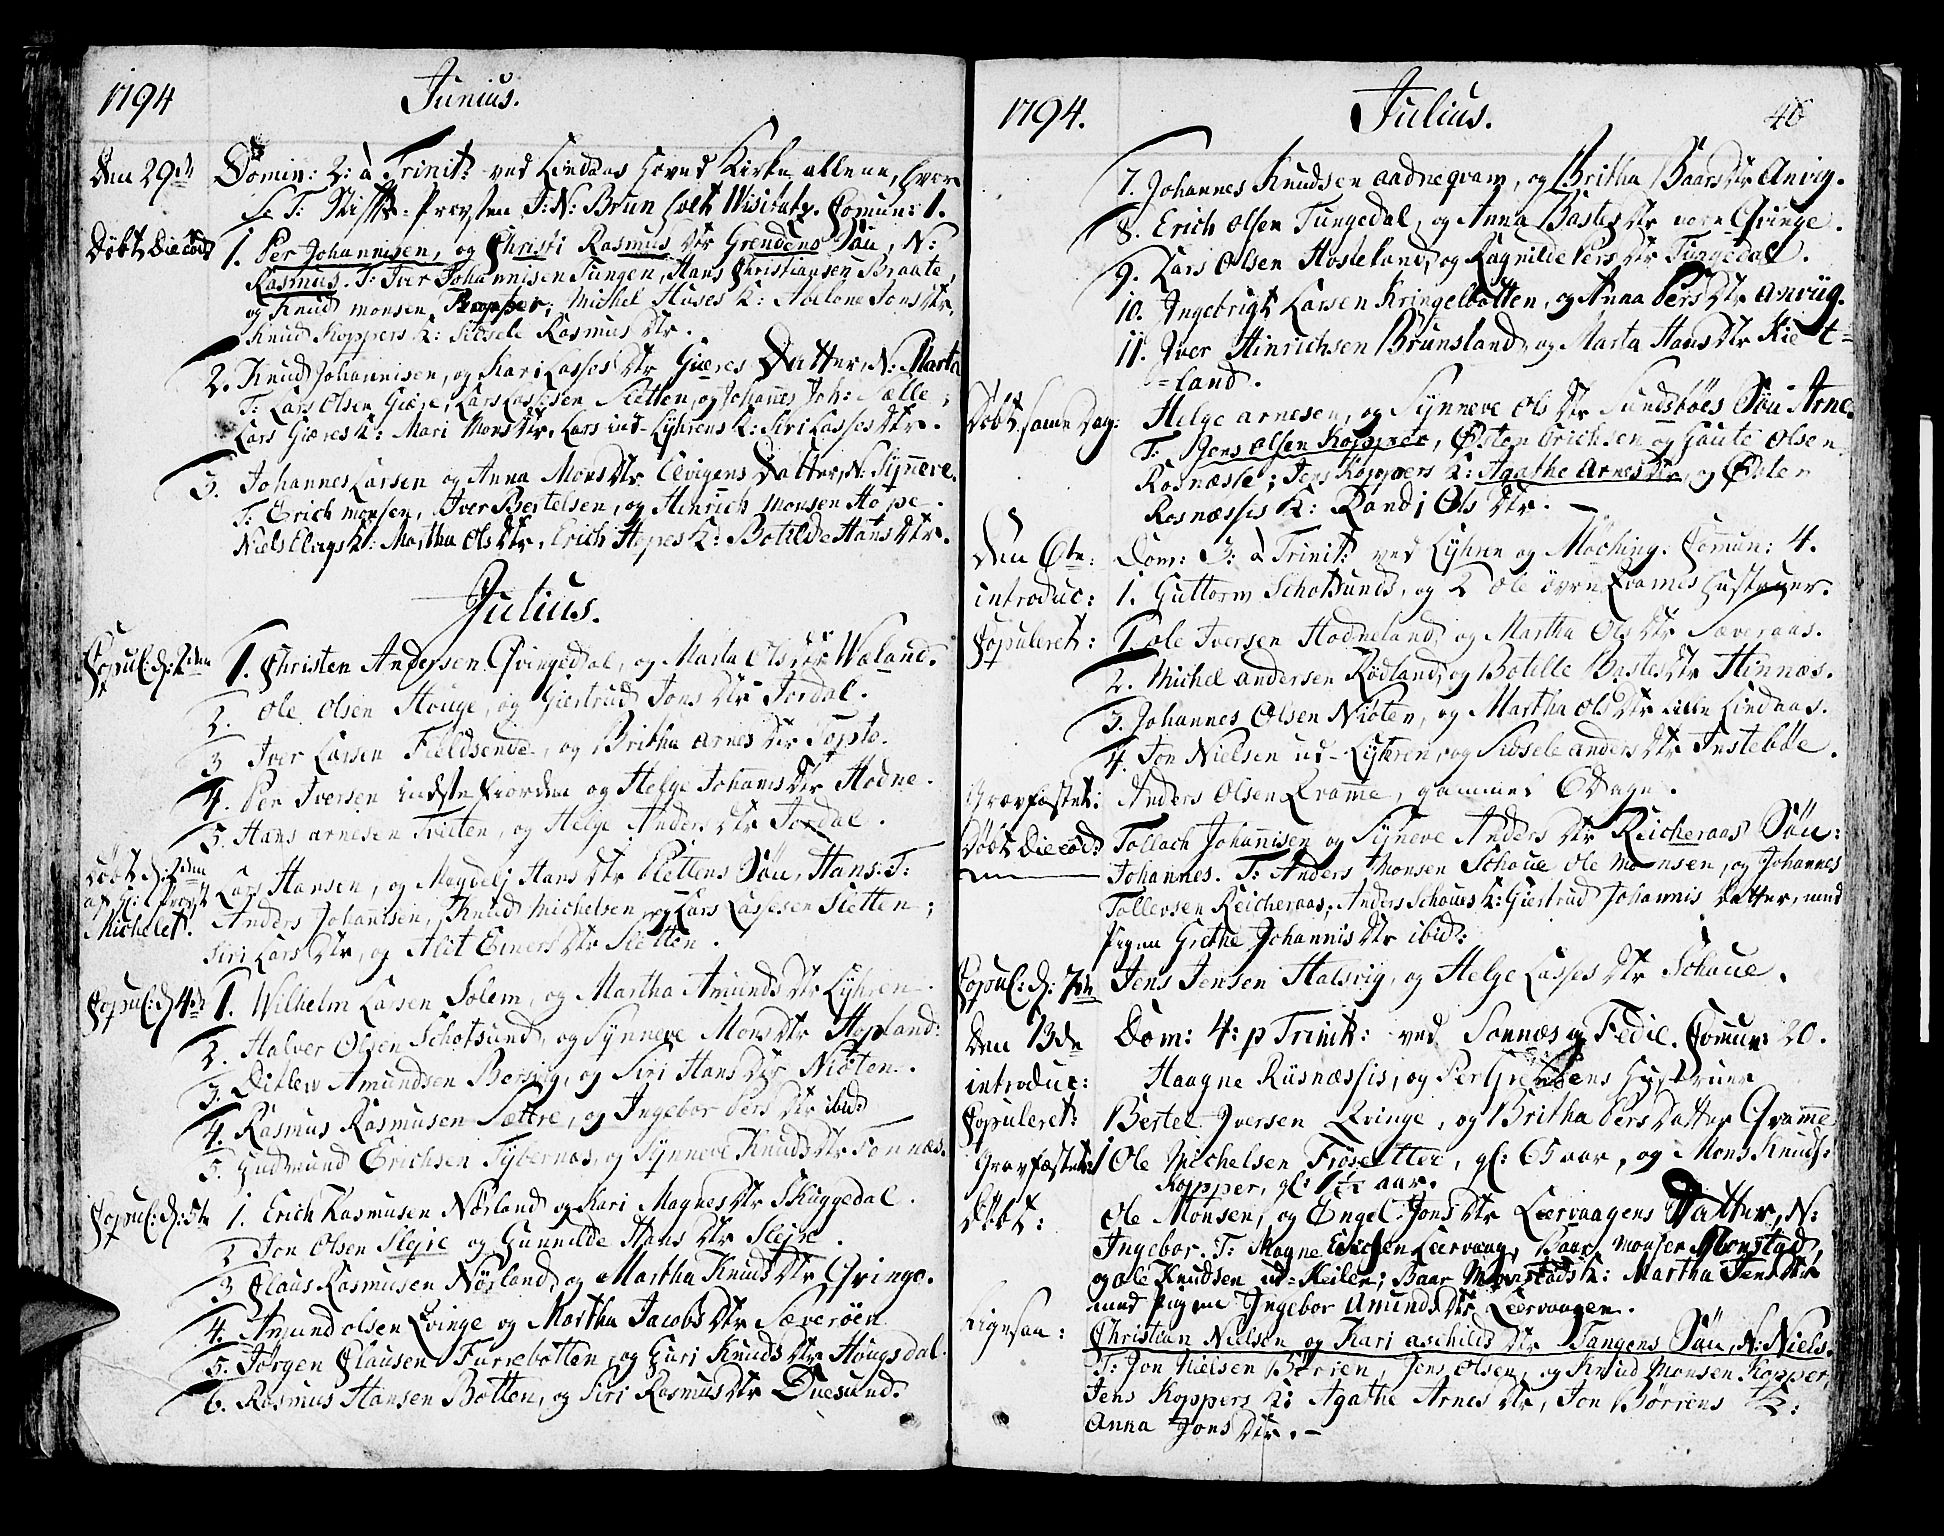 1794 Junius.
Den 29de Domin: 2: à Trinit: ved Lindaas Hoved Kirke allene, hvor
S: T: Stifts-Provsten J: N: Brun holt Visitatz. Comun: 1.
Døbt die eod: 1. Per Johannisen, og Christi Rasmus Dtr Grendens Søn, N:
Rasmus. T: Iver Johannisen Tungen, Hans Christiansen Braate,
og Knud Monsen Kopper; Michel Huses K: Abelone Jons Dtr,
Knud Koppers K: Sidsele Rasmus Dtr.
2. Knud Johannisen, og Kari Lasses Dtr Giæres Datter, N: Marta
T: Lars Olsen Giære, Lars Lassesen Sletten, og Johannes Joh: Sælle;
Lars Giæres K: Mari Mons Dtr, Lars ind-Lÿhrens K: Siri Lasses Dtr.
3. Johannes Larsen og Anna Mons Dtr Elvigens Datter, N: Sÿnneve.
T: Erich Monsen, Iver Bertelsen, og Hinrich Monsen Hope.
Niels Elvigs K: Martha Ols Dtr, Erich Hopes K: Botilde Hans Dtr.
Julius.
Copul: d: 2den 1. Christen Andersen Qvingedal, og Marta Ols Dtr Waland.
2. Ole Olsen Houge, og Giertrud Jons Dtr Jordal.
3. Iver Larsen Fieldsende, og Britha Arnes Dtr Topto.
4. Per Iversen indste Fiorden og Helge Johannis Dtr Hodne.
5. Hans Arnesen Tveten, og Helge Anders Dtr Jordal.
Døbt d: 2den
af Hr: Provst
Michelet. Lars Hansen, og Magdeli Hans Dtr Slettens Søn, Hans. T:
Anders Johannisen, Knud Michelsen, og Lars Lassesen Sletten;
Siri Lars Dtr, og Alit Einers Dtr Sletten.
Copul: d: 4de 1. Wilhelm Larsen Solem, og Martha Amunds Dtr Lÿhren.
2. Halver Olsen Schotsund, og Sÿnneve Mons Dtr Hopland:
3. Ditlew Amundsen Bersvig, og Siri Hans Dtr Niøten.
4. Rasmus Rasmusen Sættre, og Ingebor Pers Dtr ibid:
5. Gudmund Erichsen Tÿbernæs, og Sÿnneve Knuds Dtr Tonnæs.
Copul: d: 5te 1. Erich Rasmusen Nørland og Kari Magnes Dtr Skuggedal.
2. Jon Olsen Sleire og Gunnilde Hans Dtr Sleire.
3. Claus Rasmusen Nørland, og Martha Knuds Dtr Qvinge.
4. Amund Olsen Qvinge og Martha Jacobs Dtr Sæverøen
5. Jørgen Clausen Furrebotten, og Guri Knuds Dtr Hougsdal.
6. Rasmus Hansen Botten, og Siri Rasmus Dtr Duesund.
1794. Julius. 46
7. Johannes Knudsen Aadneqvam, og Britha Baars Dtr Anvig.
8. Erich Olsen Tungedal, og Anna Bastes Dtr Qvinge.
9. Lars Olsen Hosteland, og Ragnilde Pers Dtr Tungedal.
10. Ingebrigt Larsen Kringelbotten, og Anna Pers Dtr Anviig.
11. Iver Hinrichsen Brunsland, og Marta Hans Dtr Kiet-
-land.
Døbt samme Dag: Helge Arnesen, og Sÿnneve Ols Dtr Sundsbøes Søn Arne.
T: Jens Olsen Kopper, Østen Erichsen og Gaute Olsen
Rosnæsse; Jens Koppers K: Agathe Arnes Dtr, og Østen
Rosnæsses K: Randi Ols Dtr.
Den 6te: Dom: 3: à Trinit: ved Lÿhren og Mÿching. Comun: 4.
introduc: 1. Guttorm Schotsunds, og 2 Ole övre Qvames Hustruer.
Copuleret: 1. Ole Iversen Hodneland, og Martha Ols Dtr Sæveraas.
2. Michel Andersen Rødland, og Botille Bastes Dtr Hinnæs.
3. Johannes Olsen Niøten, og Martha Ols Dtr Lille Lindaas.
4. Jon Nielsen ud-Lÿhren, og Sidsele Anders Dtr Instebøe.
Gravfæstet: Anders Olsen Qvamme, gammel 6 Dage.
Døbt die eod: Tollach Johannisen og Sÿneve Anders Dtr Reicheraas Søn:
Johannes. T: Anders Monsen Schoue, Ole Monsen, og Johannes
Tollevsen Reicheraas, Anders Schoues K: Giertrud Johannis Datter, med
Pigen Grethe Johannis Dtr ibid:
Copul: d: 7de Jens Jensen Halsvig, og Helge Lasses Dtr Schoue.
Den 13de Dom: 4: p Trinit: ved Sannæs og Fedie. Comun: 20.
introduc: Haagne Riisnæssis, og Per Grendens Hustruer
Copuleret: Bertel Iversen Qvinge, og Britha Pers Datter Qvamme
Gravfæstet: 1 Ole Michelsen Frøesetter, gl: 65 aar, og Mons Knuds:
Kopper, gl: aar.
Døbt: Ole Monsen, og Engel Jons Dtr Leervaagens Datter, N:
Ingebor. T: Magne Erichsen Leervaag, Baar Monsen Monstad,
og Ole Knudsen ud-Keilen; Baar Monstads K: Martha Jens Dtr
med Pigen Ingebor Amunds Dtr Leervaagen.
Ligesaa: Christian Nielsen og Kari Aschilds Dtr Tangens Søn, N: Niels.
T: Jon Nielsen Børren, Jens Olsen, og Knud Monsen Kopper,
Jens Koppers K: Agathe Arnes Dtr, Jon Børrens K:
Anna Jons Dtr.